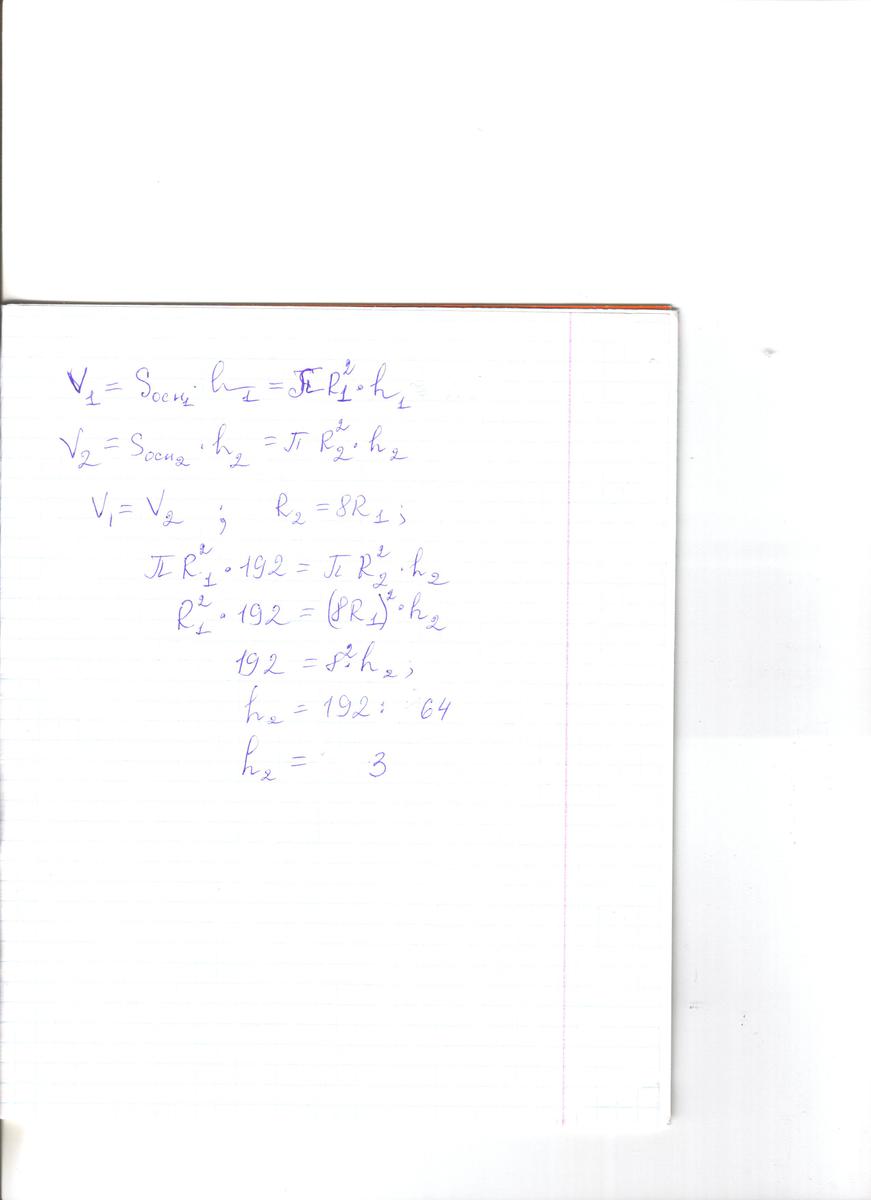 V₁ = Sосн₁ · h₁ = πR₁² · h₁
V₂ = Sосн₂ · h₂ = πR₂² · h₂
V₁ = V₂ ; R₂ = 8R₁ ;
πR₁² · 192 = πR₂² · h₂
R₁² · 192 = (8R₁)² · h₂
192 = 8² · h₂ ;
h₂ = 192 : 64
h₂ = 3